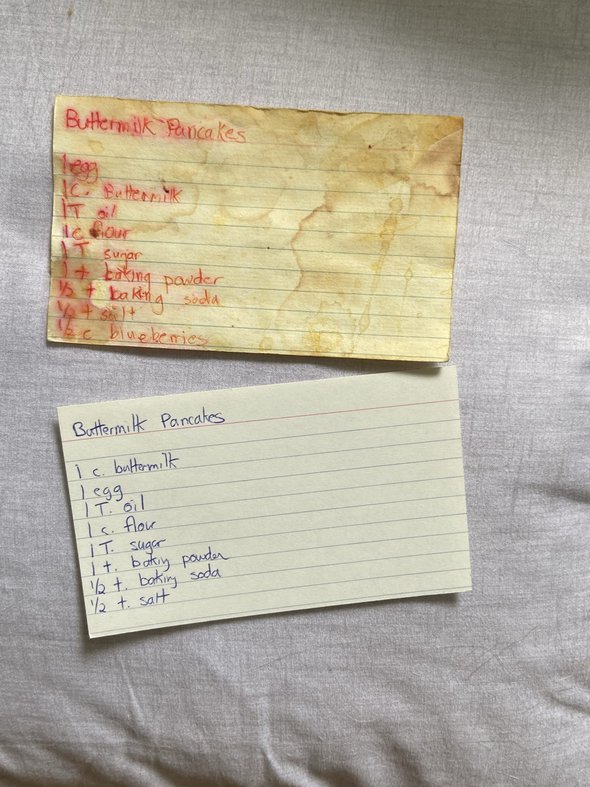 Buttermilk Pancakes
1 egg
1 c. Buttermilk
1 T oil
1 c flour
1 T sugar
1 t baking powder
1/2 t baking soda
1/2 t salt
1/2 c blueberries
Buttermilk Pancakes
1 c. buttermilk
1 egg
1 T. oil
1 c. flour
1 T. sugar
1 t. baking powder
1/2 t. baking soda
1/2 t. salt